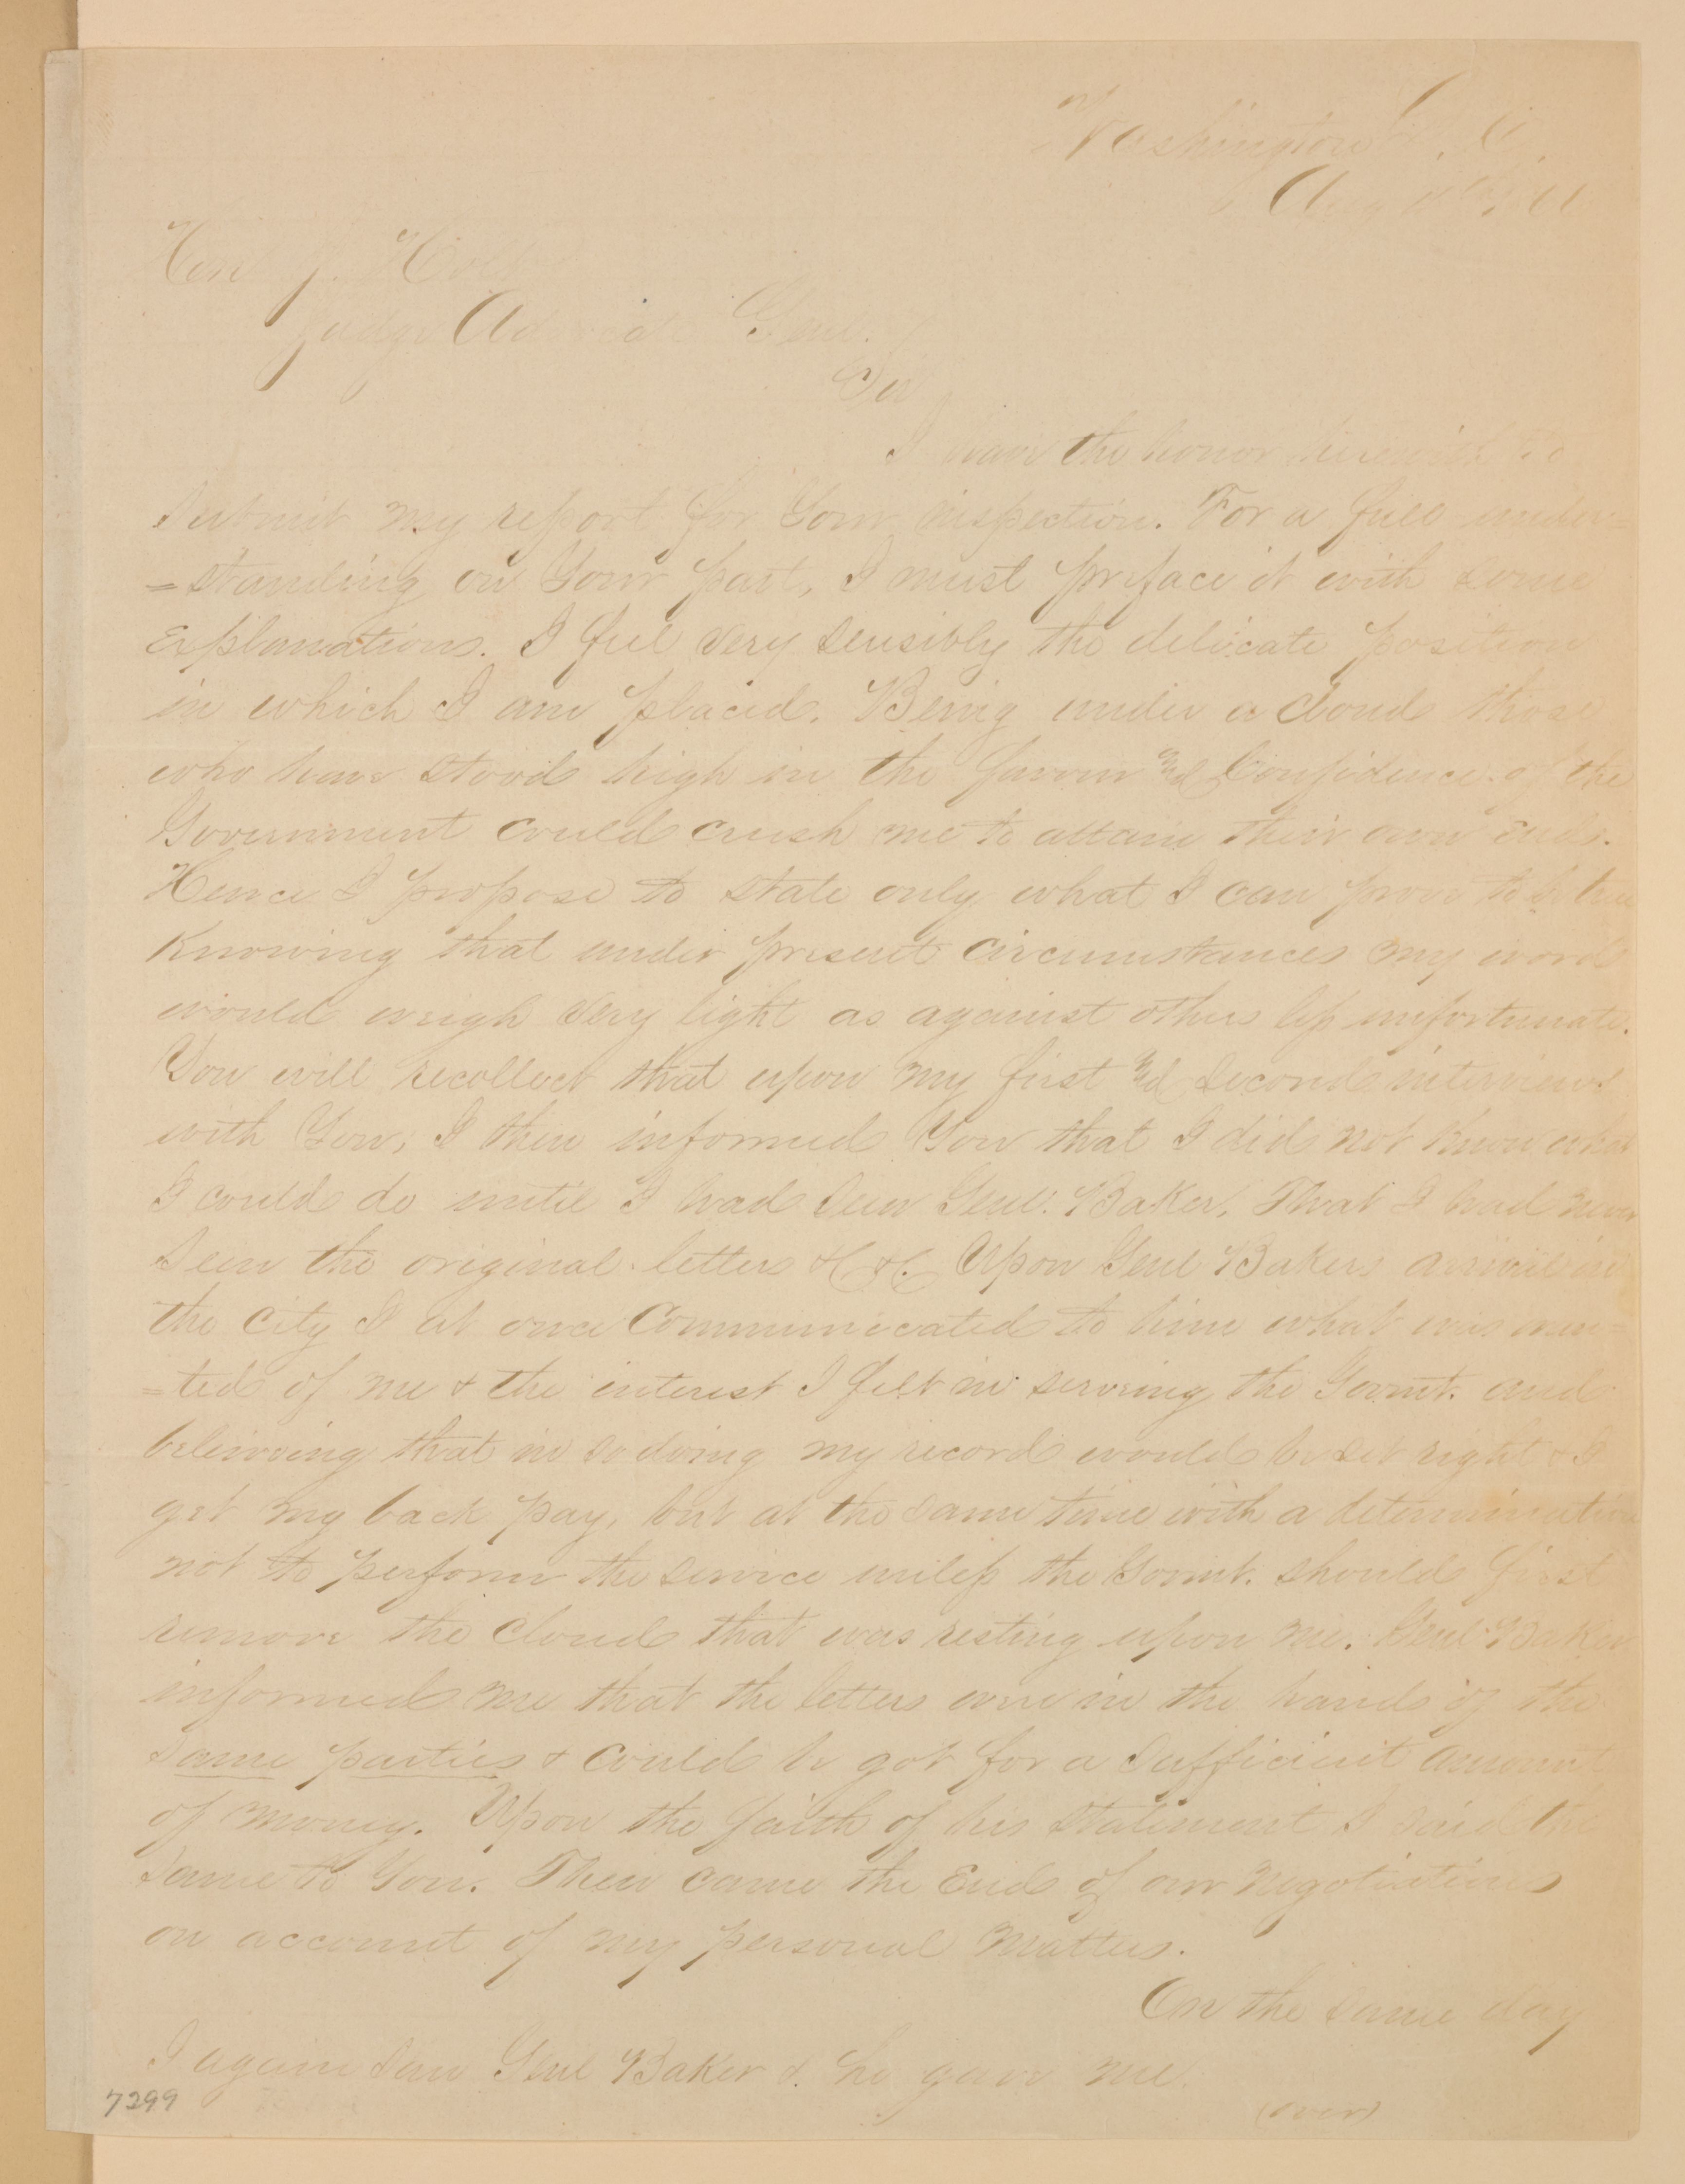 Washington D. C.
Aug
Hon J. Holt
Judge Advocate Genl.
Sir
I have the honor herewith to
submit my report for Your inspection. For a full under=
=standing on Your part, I must preface it with some
Explanations. I feel very sensibly the delicate position
in which I am placed. Being under a cloud those
who have stood high in the favour and Confidence of the
Government could crush me to attain their own Ends.
Hence I propose to state only what I can prove to be true
Knowing that under present circumstances my word
would weigh very light as against others less unfortunate.
You will recollect that upon my first and second interviews
with You, I then informed You that I did not know what
I could do until I had seen Genl. Baker, That I had never
seen the original letters &c &c. Upon Genl Bakers arrival in
the city I at once Communicated to him what was wan=
=ted of me & the interest I felt in serving the Govmt. and
believing that in so doing my record would be set right & I
get my back pay, but at the same time with a determination
not to perform the service unless the Govmt. should first
remove the cloud that was resting upon me. Genl. Baker
informed me that the letters were in the hands of the
same parties & could be got for a sufficient amount
of money. Upon the faith of his statement I said the
same to You. Then came the End of our negotiations
on account of my personal matters.
On the same day
I again saw Genl Baker & he gave me
(over)
7299